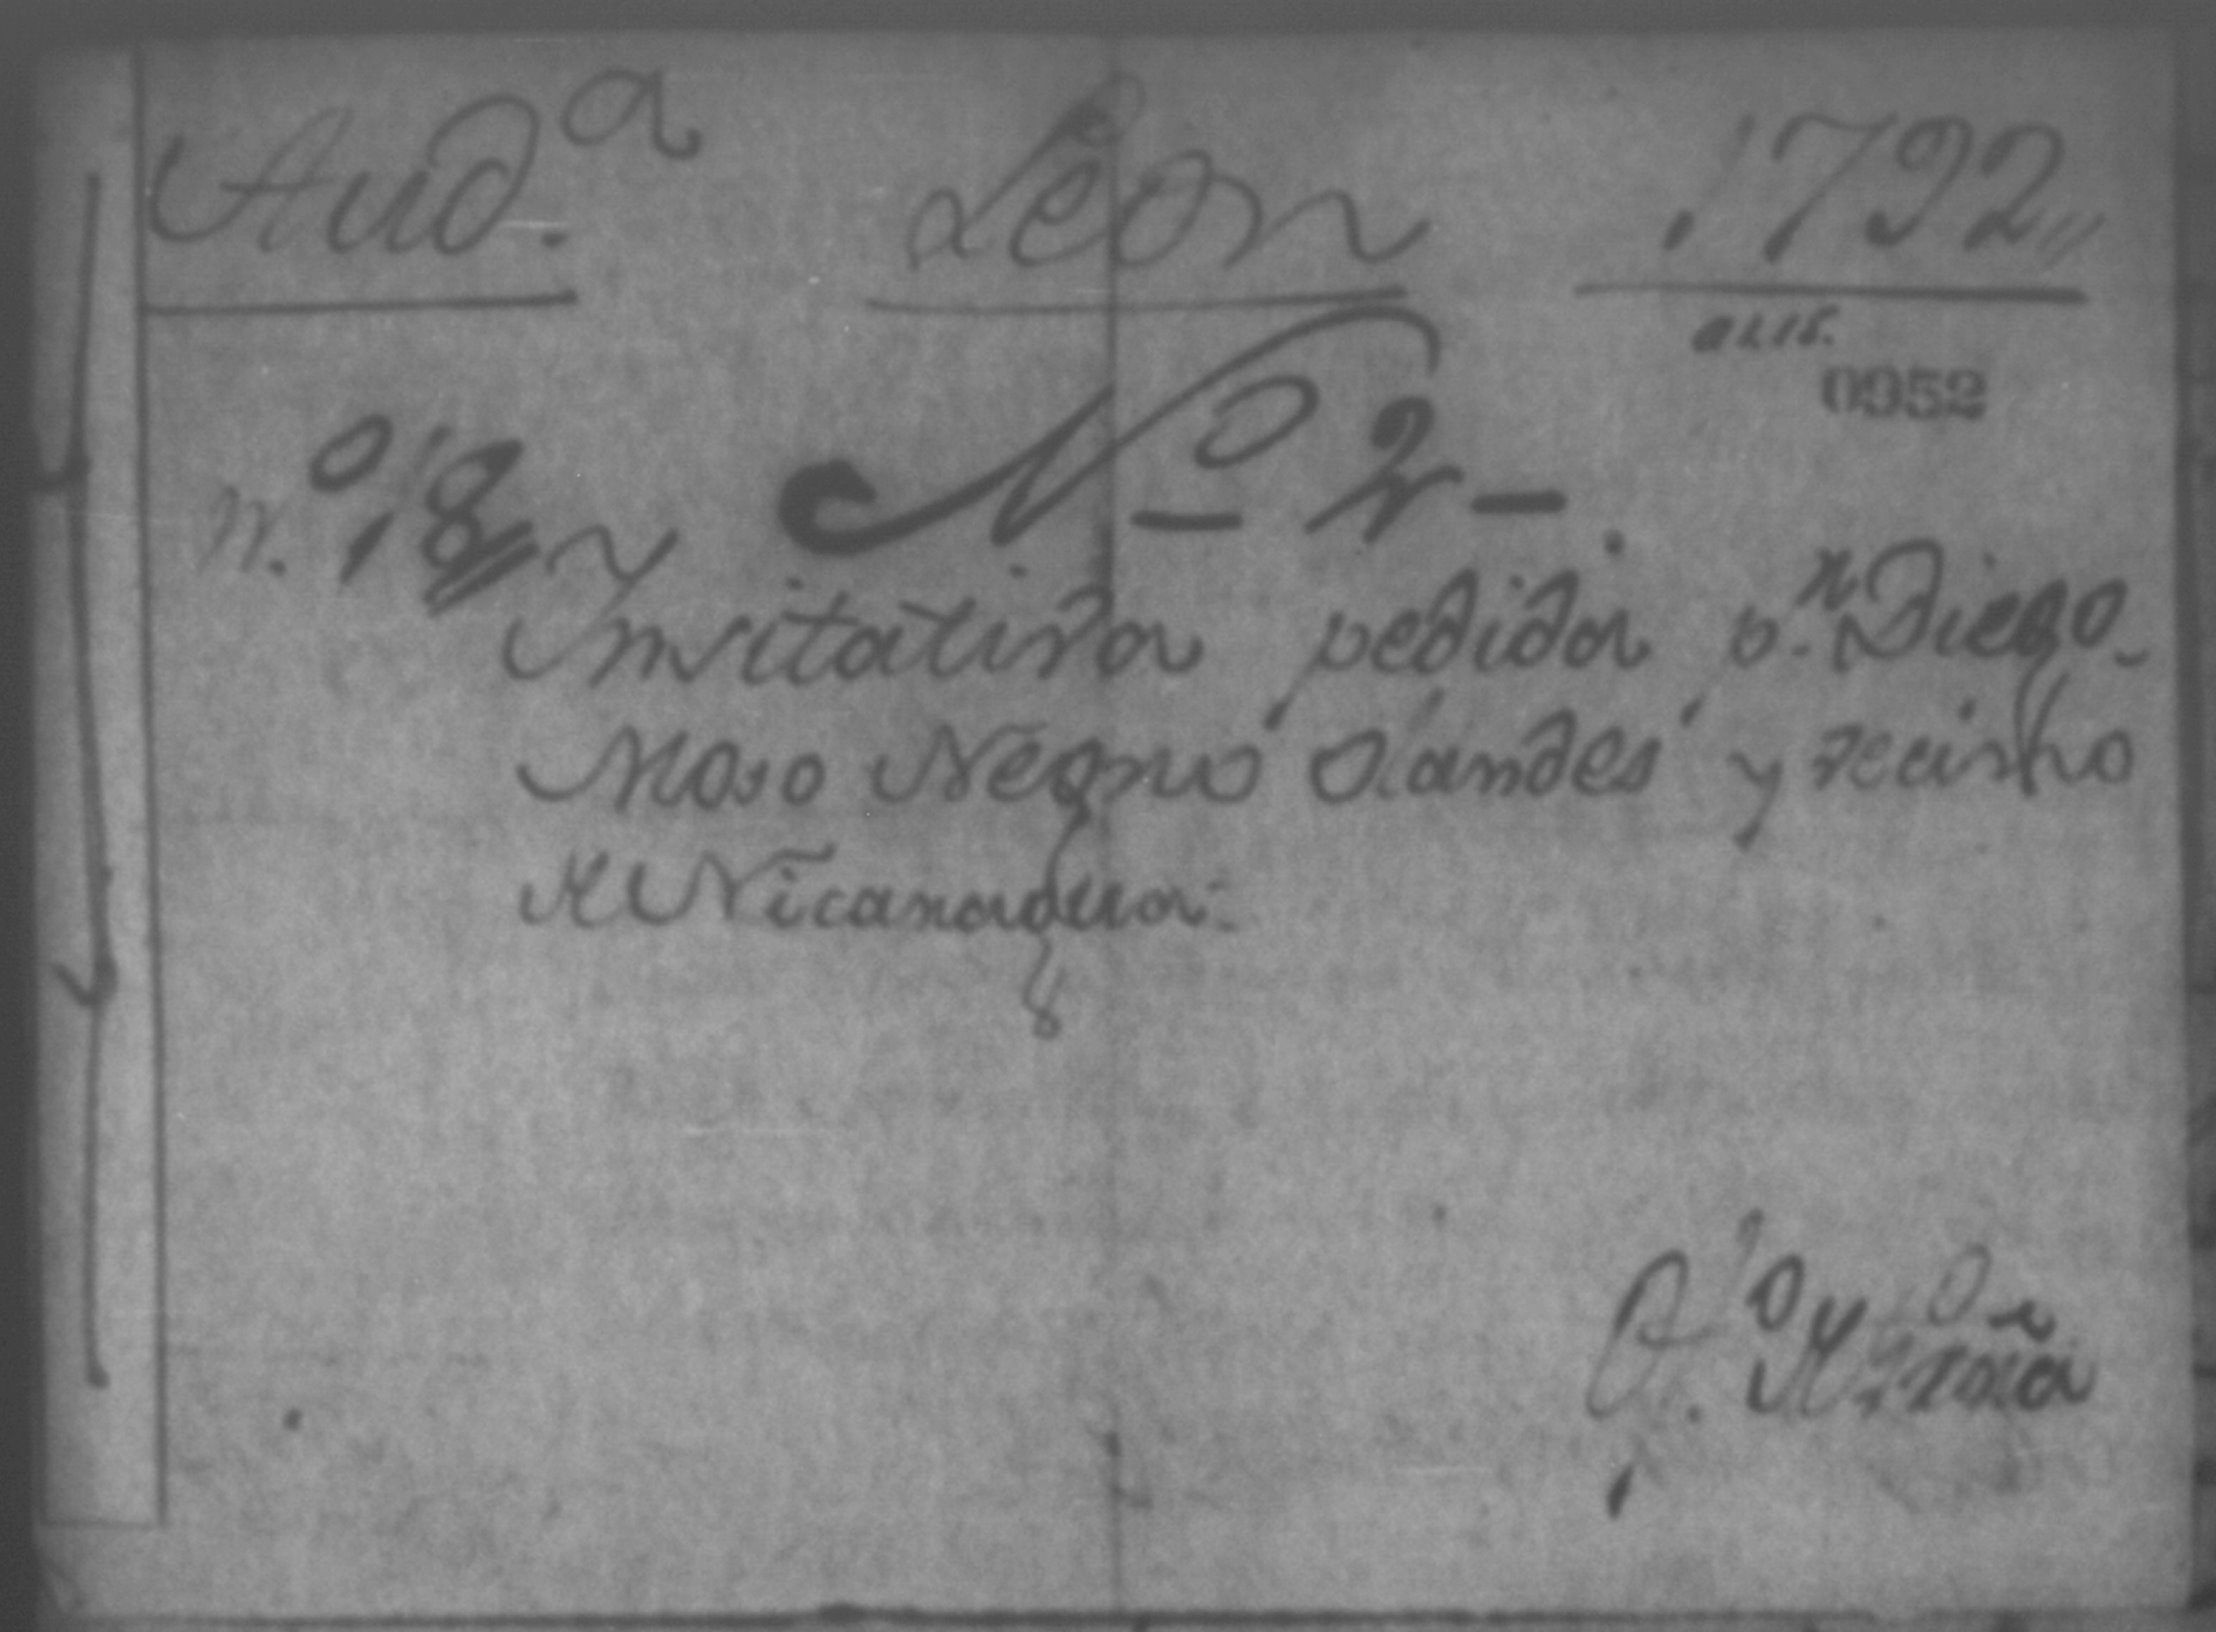 Aud.ª León 1792,,
A1.15.
0952
N.º 18,, Nº 2
Invitativa pedida p.r Diego
Moso Negro olandes y vecino
de Nicaragua.